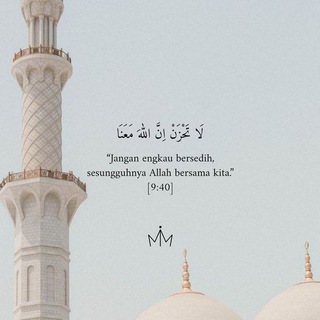 لَا تَحْزَنْ اِنَّ اللّٰهَ مَعَنَا
“Jangan engkau bersedih,
sesungguhnya Allah bersama kita.”
[9:40]